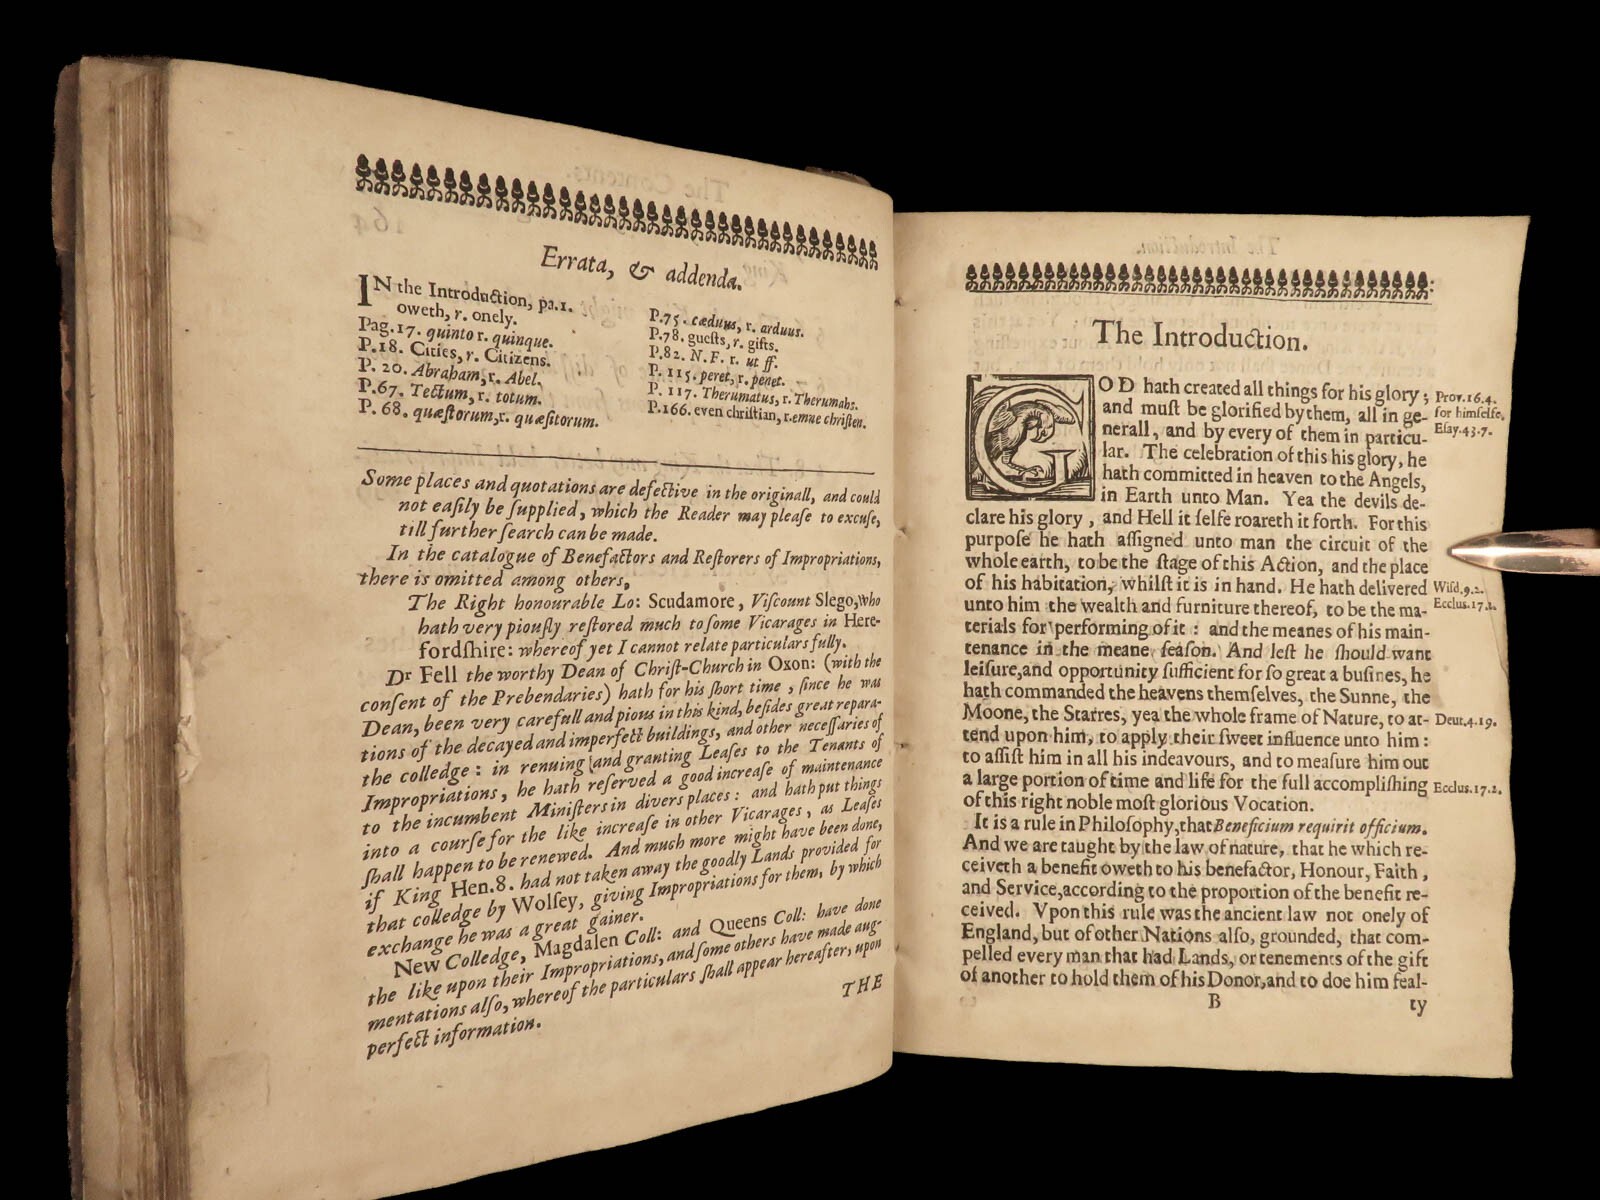 Errata, & addenda.
IN the Introduction, pa.1.
oweth, r. onely.
Pag.17. quinto r. quinque.
P.18. Cities, r. Citizens.
P. 20. Abraham, r. Abel.
P.67. Tectum, r. totum.
P. 68. quæſtorum,r. quæſitorum.
P.75. cæduus, r. arduus.
P.78. gueſts, r. gifts.
P.82. N.F. r. ut ff.
P. 115. peret, r. penet.
P. 117. Therumatus, r. Therumahs.
P.166. even chriſtian, r.emne chriſten.
Some places and quotations are defective in the originall, and could
not eaſily be ſupplied, which the Reader may pleaſe to excuſe,
till further ſearch can be made.
In the catalogue of Benefactors and Reſtorers of Impropriations,
there is omitted among others,
The Right honourable Lo: Scudamore, Viſcount Slego, who
hath very piouſly reſtored much to ſome Vicarages in Here-
fordſhire: whereof yet I cannot relate particulars fully.
Dr Fell the worthy Dean of Chriſt-Church in Oxon: (with the
conſent of the Prebendaries) hath for his ſhort time, ſince he was
Dean, been very carefull and pious in this kind, beſides great repara-
tions of the decayed and imperfect buildings, and other neceſſaries of
the colledge: in renuing and granting Leaſes to the Tenants of
Impropriations, he hath reſerved a good increaſe of maintenance
to the incumbent Miniſters in divers places: and hath put things
into a courſe for the like increaſe in other Vicarages, as Leaſes
ſhall happen to be renewed. And much more might have been done,
if King Hen.8. had not taken away the goodly Lands provided for
that colledge by Wolſey, giving Impropriations for them, by which
exchange he was a great gainer.
New Colledge, Magdalen Coll: and Queens Coll: have done
the like upon their Impropriations, and ſome others have made aug-
mentations alſo, whereof the particulars ſhall appear hereafter, upon
perfect information.
THE
The Introduction.
GOD hath created all things for his glory;
and muſt be glorified by them, all in ge-
nerall, and by every of them in particu-
lar. The celebration of this his glory, he
hath committed in heaven to the Angels,
in Earth unto Man. Yea the devils de-
clare his glory, and Hell it ſelfe roareth it forth. For this
purpoſe he hath aſſigned unto man the circuit of the
whole earth, to be the ſtage of this Action, and the place
of his habitation, whilſt it is in hand. He hath delivered
unto him the wealth and furniture thereof, to be the ma-
terials for performing of it: and the meanes of his main-
tenance in the meane ſeaſon. And leſt he ſhould want
leiſure,and opportunity ſufficient for ſo great a buſines, he
hath commanded the heavens themſelves, the Sunne, the
Moone, the Starres, yea the whole frame of Nature, to at-
tend upon him, to apply their ſweet influence unto him:
to aſſiſt him in all his indeavours, and to meaſure him out
a large portion of time and life for the full accompliſhing
of this right noble moſt glorious Vocation.
It is a rule in Philoſophy,that Beneficium requirit officium.
And we are taught by the law of nature, that he which re-
ceiveth a benefit oweth to his benefactor, Honour, Faith,
and Service,according to the proportion of the benefit re-
ceived. Vpon this rule was the ancient law not onely of
England, but of other Nations alſo, grounded, that com-
pelled every man that had Lands, or tenements of the gift
of another to hold them of his Donor,and to doe him feal-
B
ty
Prov.16.4.
for himſelfe.
Eſay.43.7.
Wiſd.9.2.
Eccluſ.17.1.
Deut.4.19.
Eccluſ.17.2.